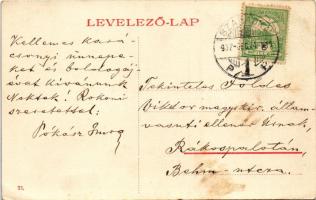 LEVELEZŐ-LAP
Kellemes kará-
csonyi ünnepe-
ket és boldog új
évet kívánunk
Nektek! Rokoni
szeretettel:
Pókász Imre
Tekintetes Földes
Viktor magy. kir. állam-
vasuti ellenőr Úrnak,
Rákospalotán,
Behm-utcza.